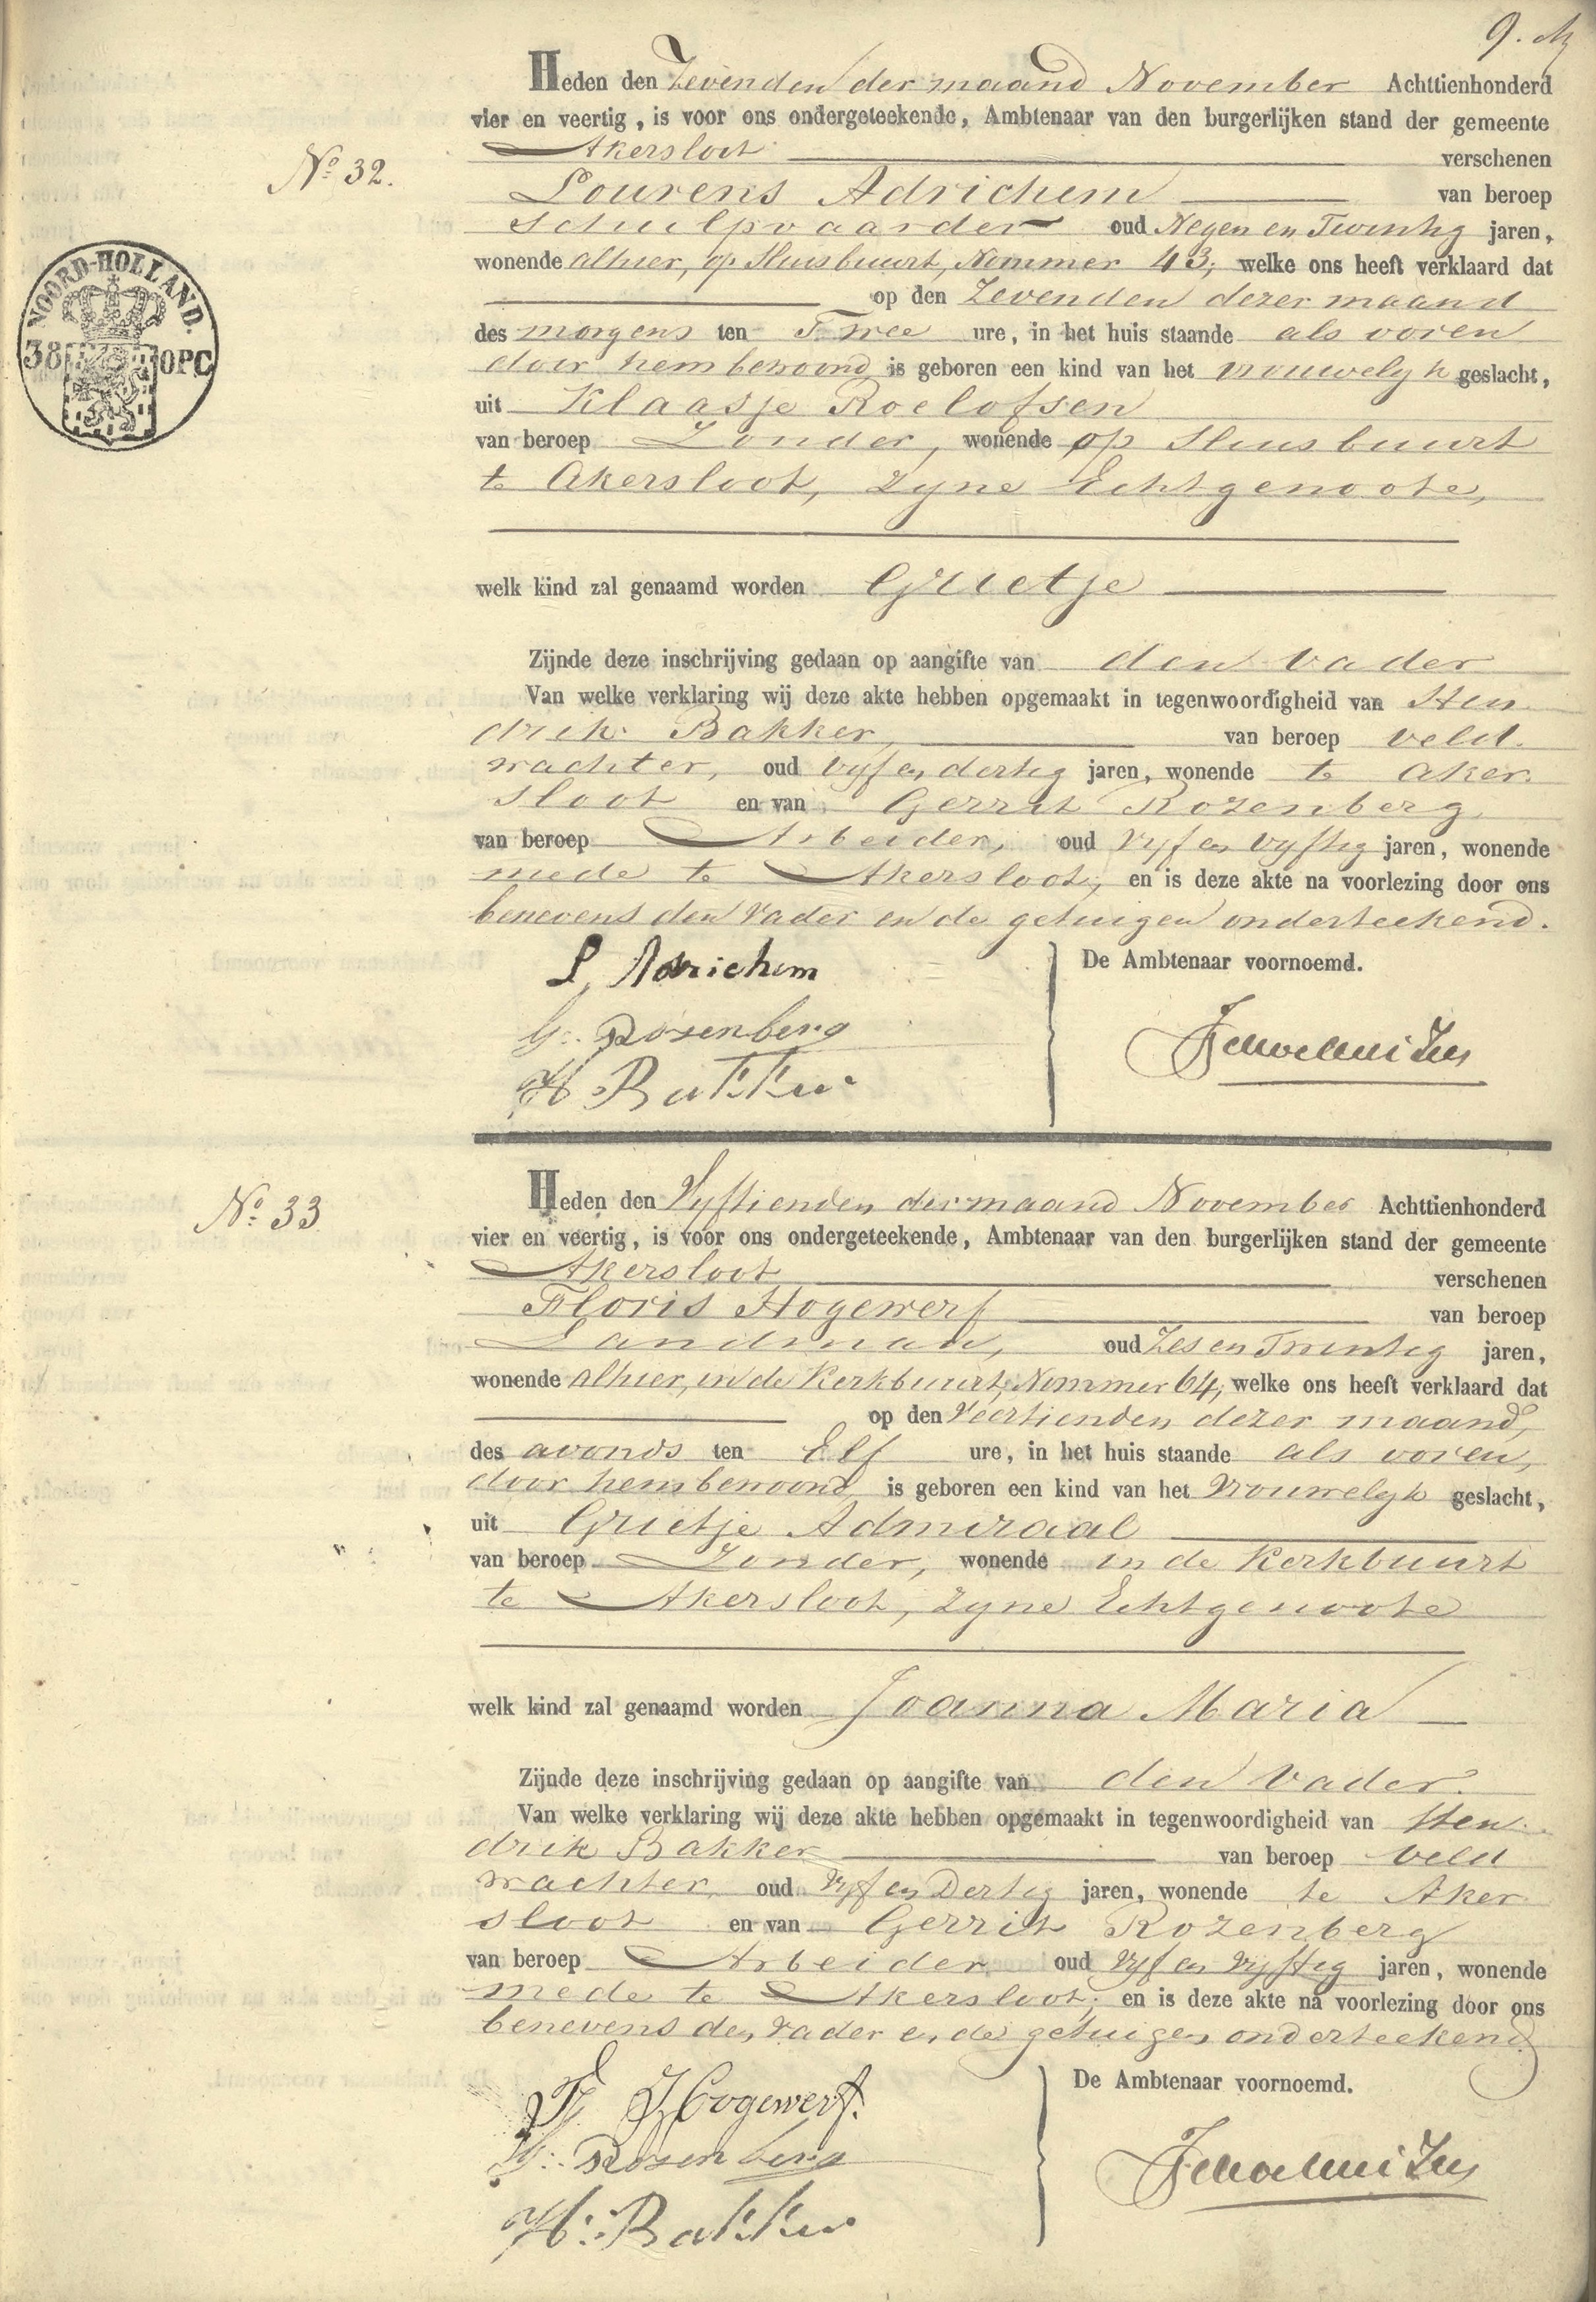 9.
Heden den Zevenden der maand November Achttienhonderd
vier en veertig, is voor ons ondergeteekende, Ambtenaar van den burgerlijken stand der gemeente
Akersloot verschenen
No 32.
Lourens Adrichem van beroep
schulpvaarder oud Negen en Twintig jaren,
wonende alhier, op Sluisbuurt, Nommer 43, welke ons heeft verklaard dat
op den Zevenden dezer maand
des morgens ten Twee ure, in het huis staande als voren
door hem bewoond is geboren een kind van het vrouwelyk geslacht,
uit Klaasje Roelofsen
van beroep Zonder, wonende op Sluisbuurt
te Akersloot, zyne Echtgenoote,
NOORD-HOLLAND.
38 OPC
welk kind zal genaamd worden Grietje
Zijnde deze inschrijving gedaan op aangifte van den vader
Van welke verklaring wij deze akte hebben opgemaakt in tegenwoordigheid van Hen
drik Bakker, van beroep veld
wachter, oud vyf en dertig jaren, wonende te Aker
sloot en van Gerrit Rozenberg
van beroep Arbeider, oud vyf en vyftig jaren, wonende
mede te Akersloot, en is deze akte na voorlezing door ons
benevens den vader en de getuigen onderteekend.
L, Adrichem
De Ambtenaar voornoemd.
G. Rosenberg
H Bakker
No 33
Heden den Vyftienden der maand November Achttienhonderd
vier en veertig, is voor ons ondergeteekende, Ambtenaar van den burgerlijken stand der gemeente
Akersloot verschenen
Floris Hogewerf van beroep
Landman, oud Zes en Twintig jaren,
wonende alhier, in de Kerkbuurt, Nommer 64, welke ons heeft verklaard dat
op den Veertienden dezer maand,
des avonds ten Elf ure, in het huis staande als voren,
door hem bewoond is geboren een kind van het vrouwelyk geslacht,
uit Grietje Admiraal
van beroep Zonder, wonende in de Kerkbuurt
te Akersloot, zyne Echtgenoote
welk kind zal genaamd worden Joanna Maria
Zijnde deze inschrijving gedaan op aangifte van den vader.
Van welke verklaring wij deze akte hebben opgemaakt in tegenwoordigheid van Hen
drik Bakker van beroep veld
wachter, oud Vyf en Dertig jaren, wonende te Aker
sloot en van Gerrit Rozenberg
van beroep Arbeider oud vyf en vyftig jaren, wonende
mede te Akersloot, en is deze akte na voorlezing door ons
benevens den vader en de getuigen onderteekend
F Hogewerf.
De Ambtenaar voornoemd.
G. Rosenberg
H. Bakker